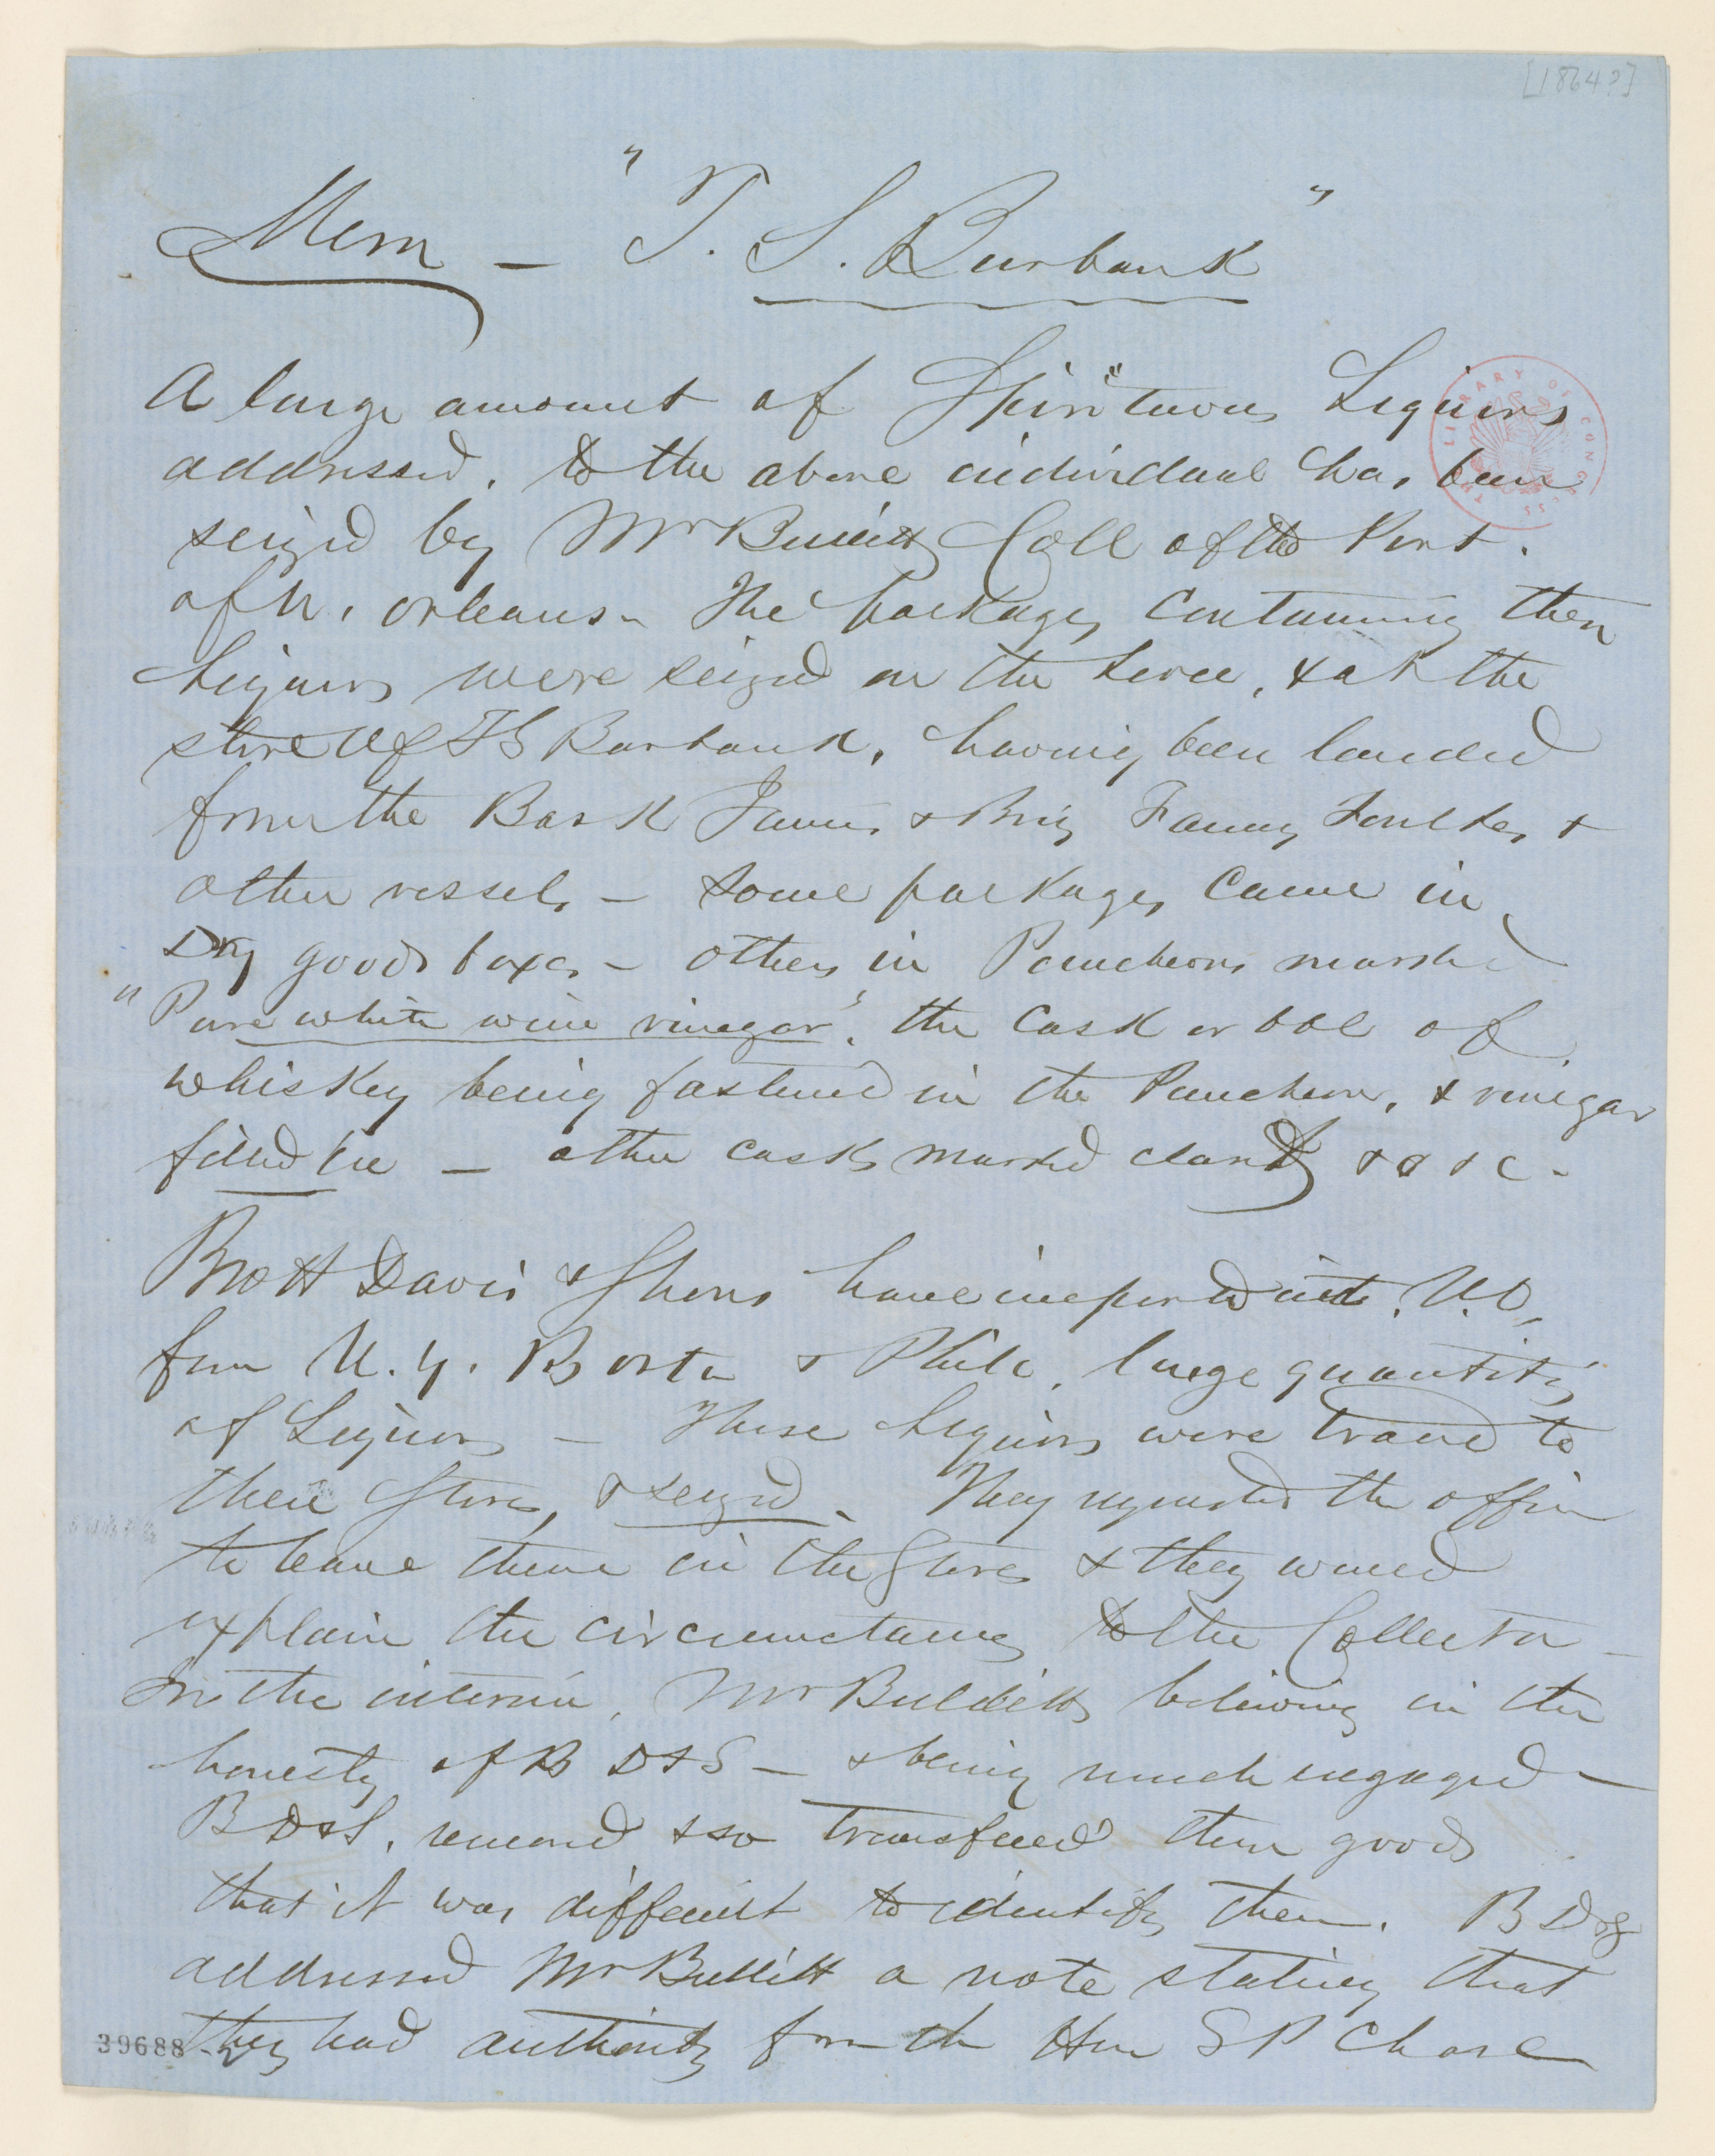 [1864?]
Mem — "T. S. Burbank"
A large amount of Spirituous Liquors
addressed, to the above individual has been
seized by Mr Bullitt Coll of the Port.
of N. Orleans – The packages containing these
liquors were seized on the Levee, & at the
store of T S Burbank, having been landed
from the Bark James & Brig Fanny Foulkes &
other vessels – Some packages came in
Dry goods boxes – others in Puncheons marked
"Pure white wine vinegar", the cask or bbl of
whiskey being fastened in the Puncheon, & vinegar
filled in – other casks marked clarets & & & c –
Brott Davis & Shons have imported into N.O.
from N. Y. Boston & Phila, large quantities
of Liquors – These liquors were traced to
their Stores, & seized. They requested the officer
to leave them in the Stores & they would
explain the circumstances to the Collector –
In the interim, Mr Bullitt, believing in the
honesty of B D & S – & being much engaged –
B D & S, removed & so transfered these goods
that it was difficult to identify them. B D & S
addressed Mr Bullitt a note stating that
they had authority from the Hon S P Chase
39688
LIBRARY OF CONGRESS